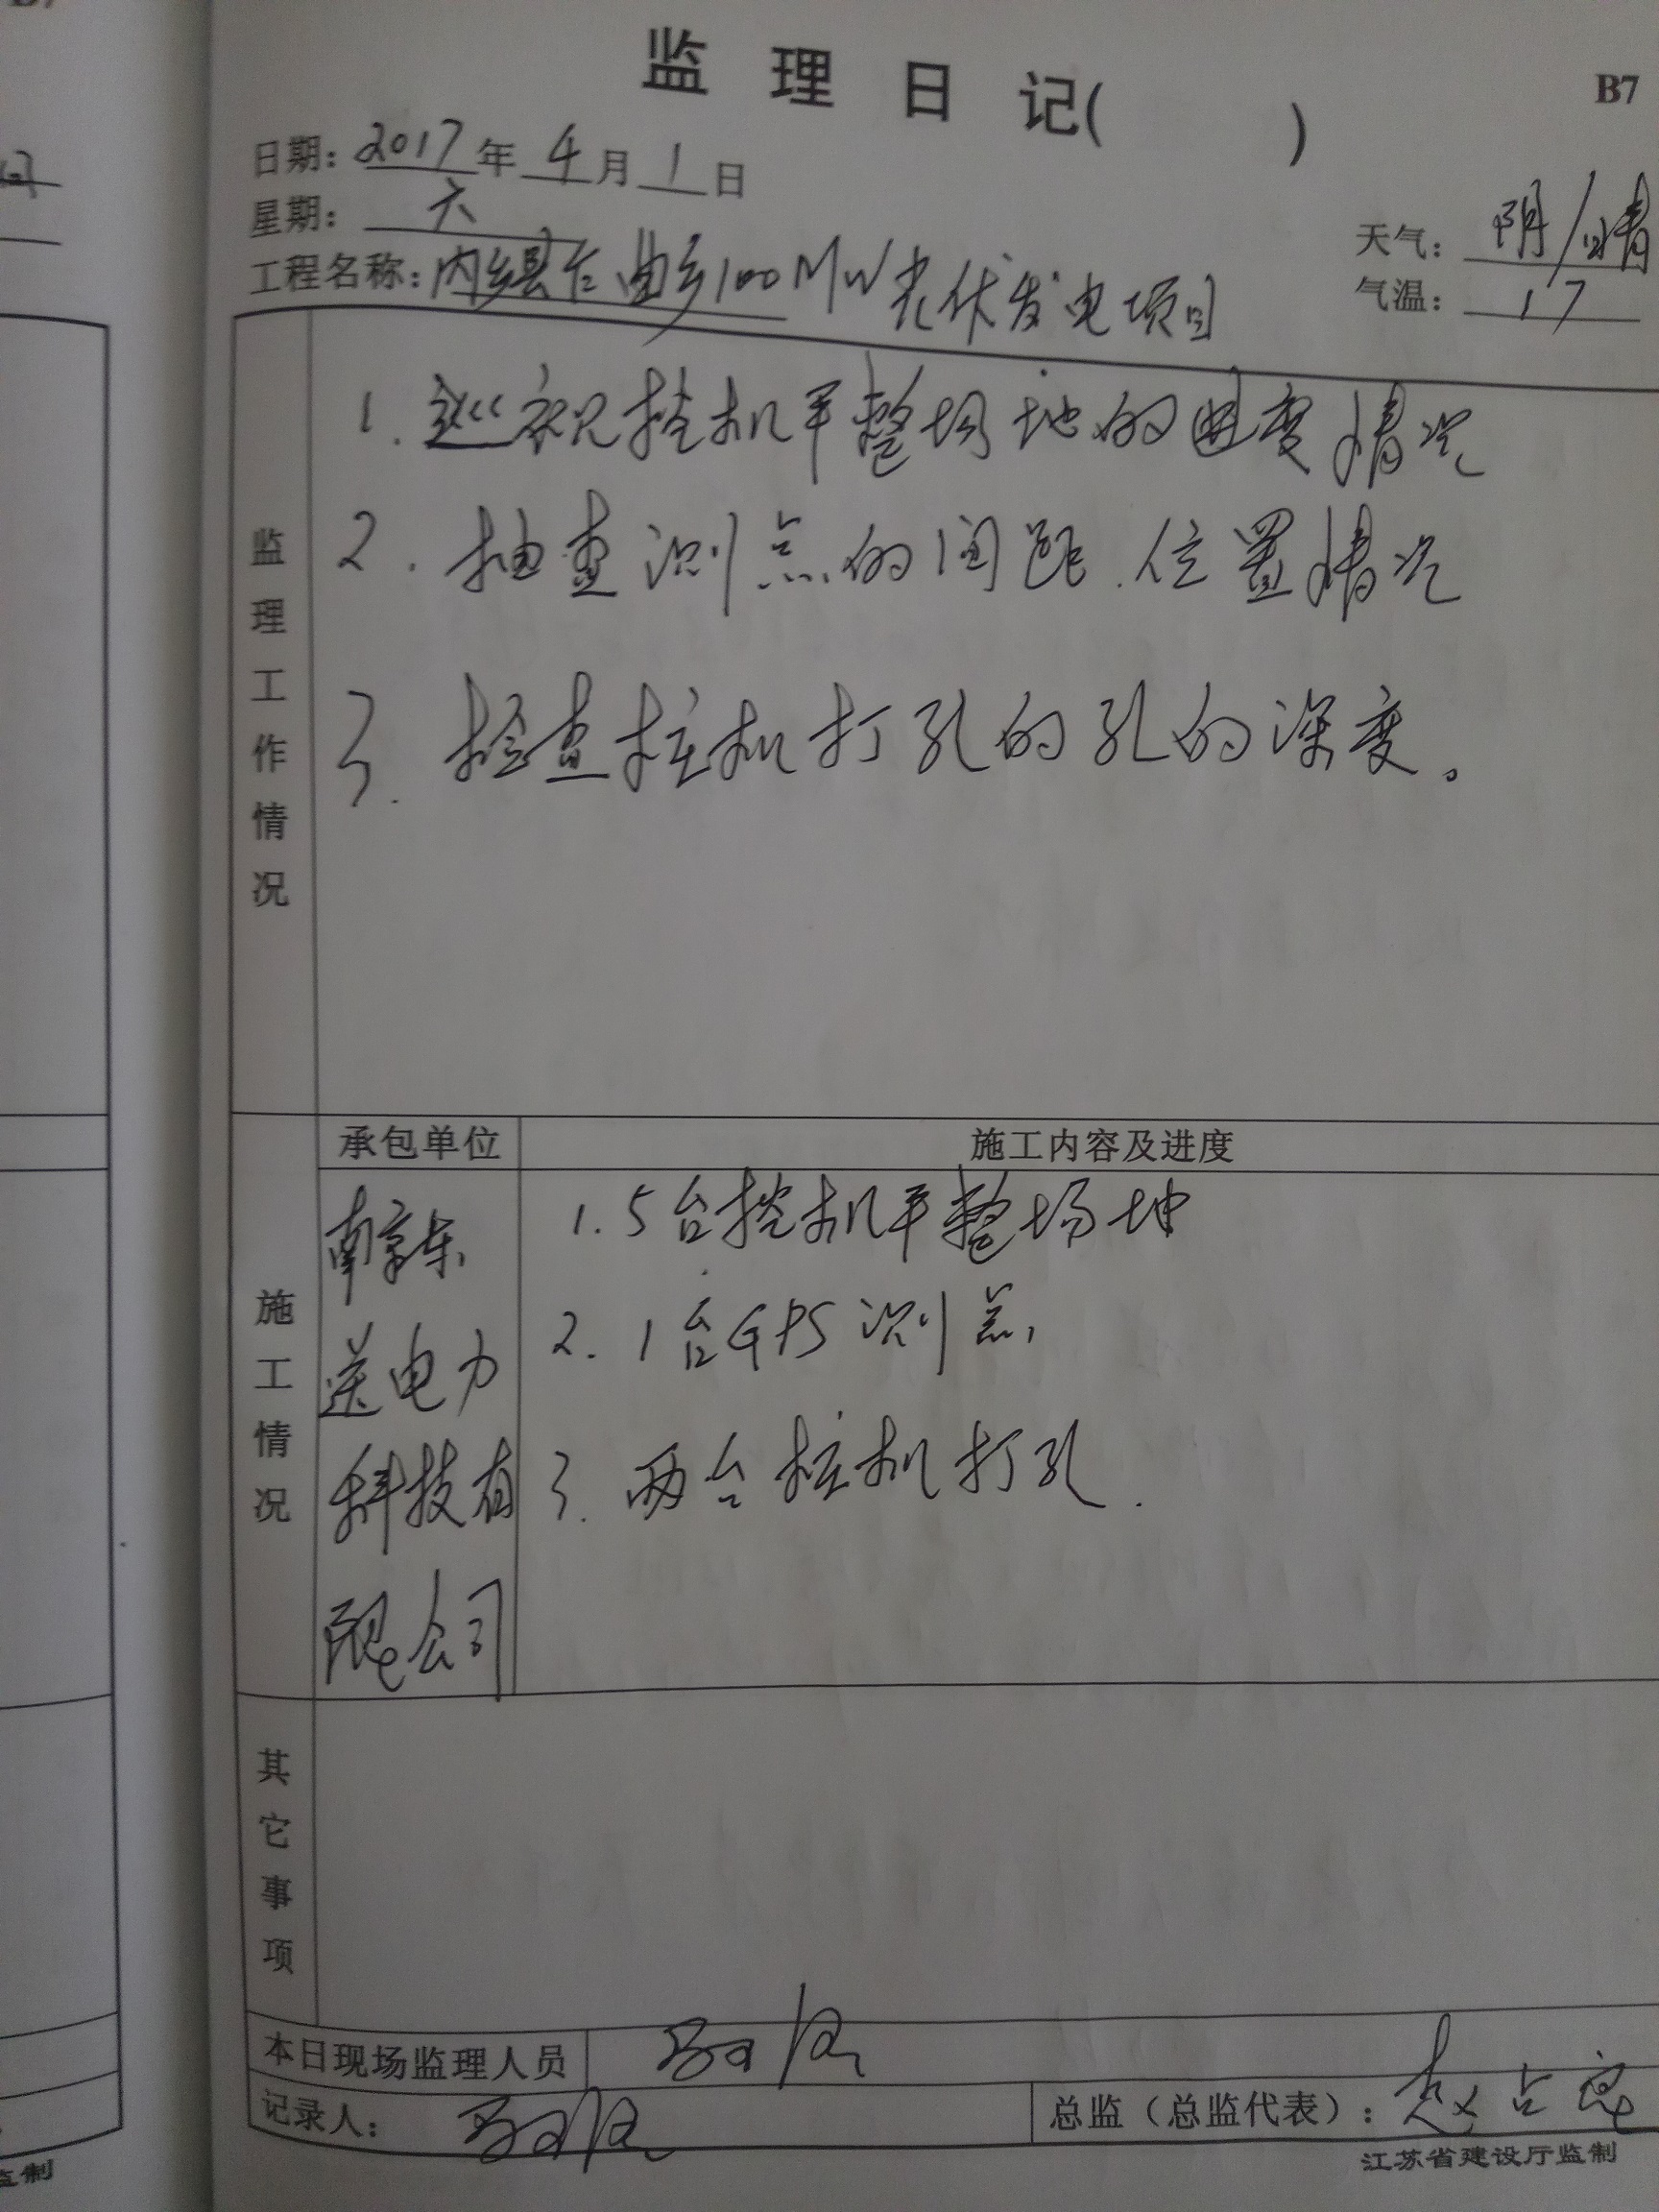 监理日记( )
B7
日期：2017年4月1日
星期：六
天气：阴/晴
工程名称：内乡县乍曲乡100MW光伏发电项目
气温：17
监理工作情况
1.巡视挖机平整场地的进度情况
2.抽查测点的间距.位置情况
3.检查桩机打孔的孔的深度。
承包单位
施工内容及进度
施工情况
南京东
送电力
科技有
限公司
1.5台挖机平整场地
2.1台GPS测点
3.两台桩机打孔.
其它事项
本日现场监理人员
记录人：
总监（总监代表）：赵占亮
江苏省建设厅监制
监制